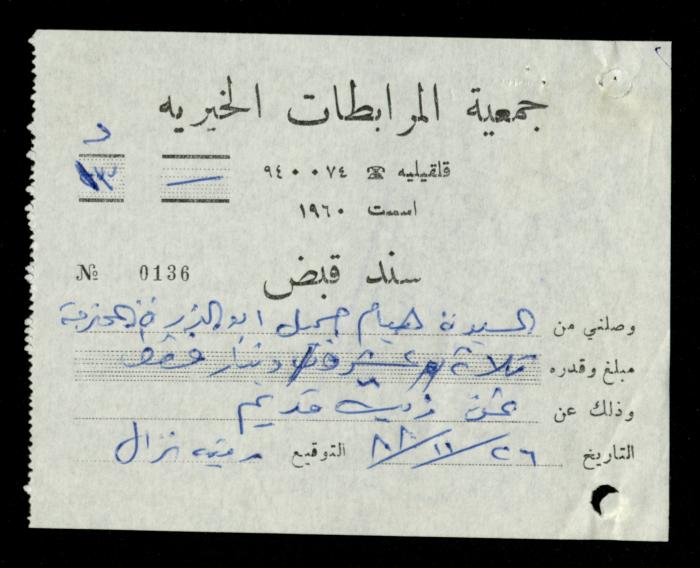 جمعية المرابطات الخيريه
قلقيليه ☎ ٩٤٠٠٧٤
د
اسست ١٩٦٠
№ 0136
سند قبض
وصلني من السيدة هيام جميل ابو المحترمة
مبلغ وقدره ثلاثة دينار فقط
وذلك عن ثمن قديم
التاريخ ٢٦/١١/٨٨ التوقيع نزال